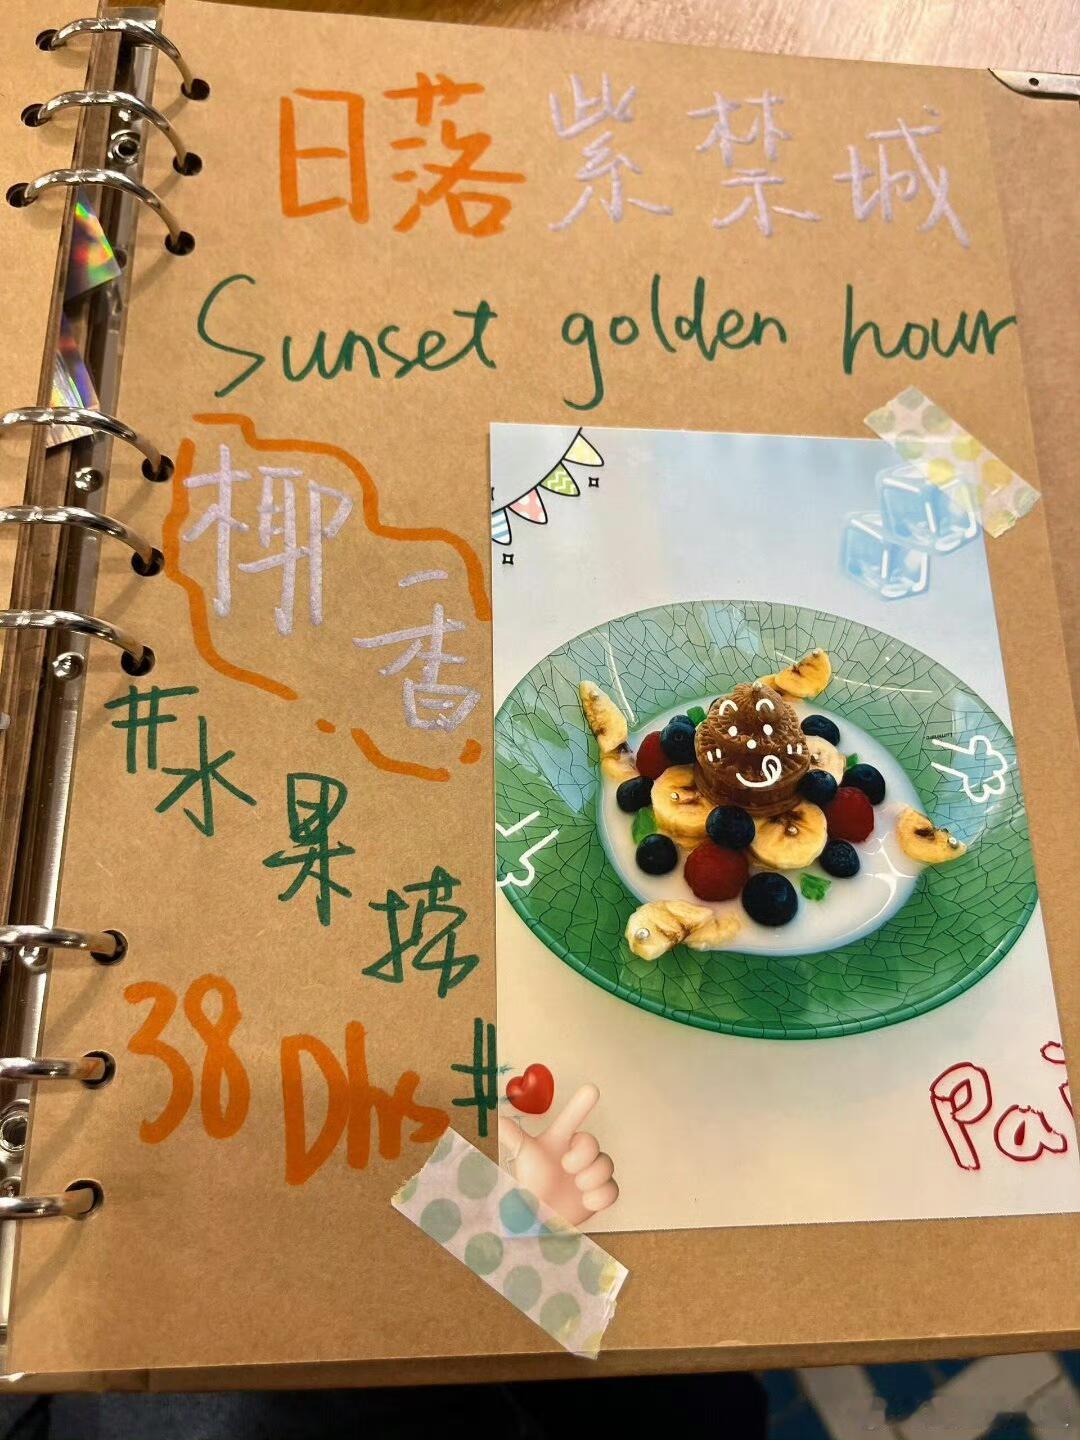 日落紫禁城
Sunset golden hour
椰香
#水果捞
38Dhs#